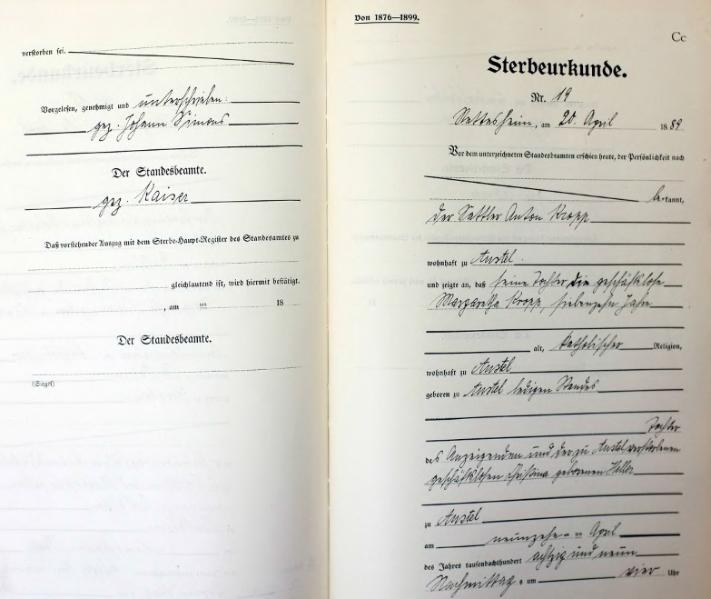 verstorben sei.
Vorgelesen, genehmigt und unterschrieben:
gez. Johann Simons
Der Standesbeamte.
gez. Kaiser
Daß vorstehender Auszug mit dem Sterbe-Haupt-Register des Standesamtes zu
gleichlautend ist, wird hiermit bestätigt.
, am 18
Der Standesbeamte.
(Siegel)
Von 1876—1899.
Cc
Sterbeurkunde.
Nr. 19
am 20. April 1889
Vor dem unterzeichneten Standesbeamten erschien heute, der Persönlichkeit nach
be-kannt,
der Sattler Anton Kropp
wohnhaft zu Anstel.
und zeigte an, daß seine Tochter die geschäftlose
Margaretha Kropp, siebenzehn Jahre
alt, katholischer Religion,
wohnhaft zu Anstel
geboren zu Anstel ledigen Standes
Tochter
des Anzeigenden und der zu Anstel verstorbenen
geschäftlosen Christina geborenen Heller
zu Anstel
am neunzehn-n April
des Jahres tausendachthundert achtzig und neun
Nachmittag-s um vier Uhr